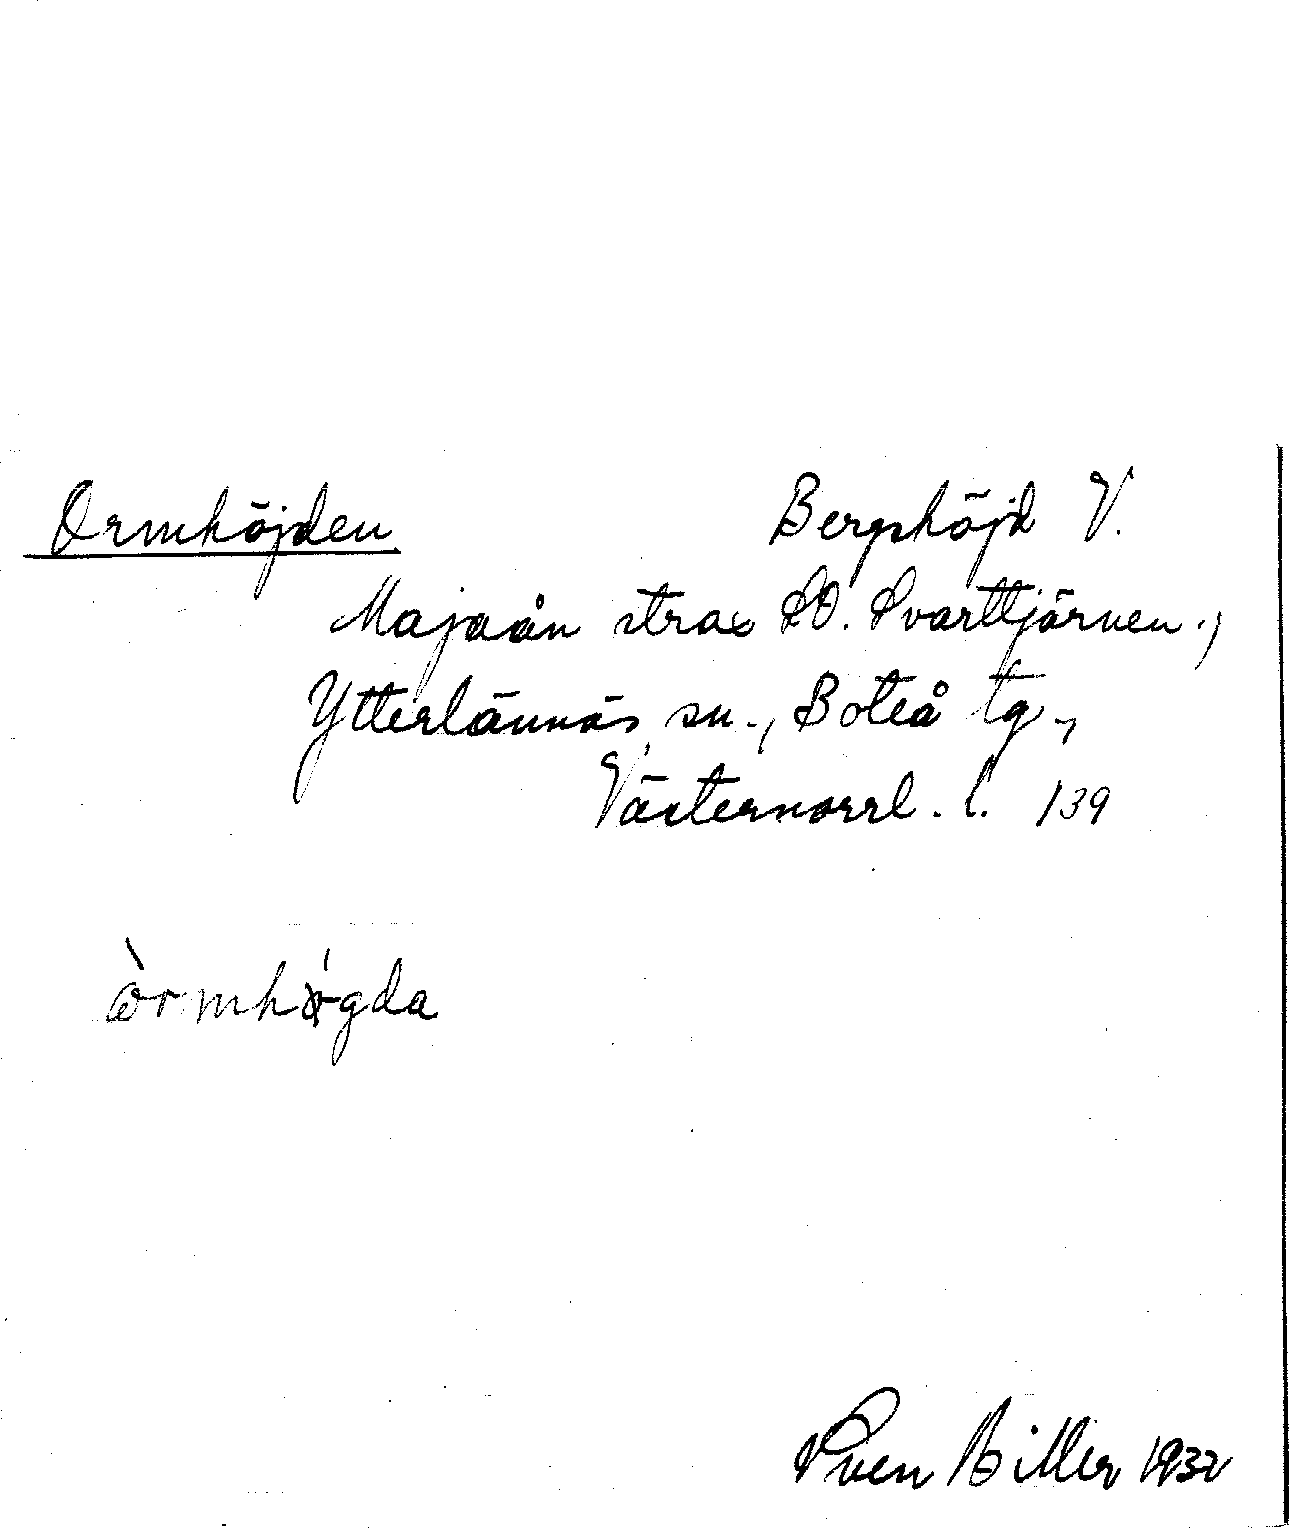 Ormhöjden Bergshöjd V.
Majaån strax SO. Svarttjärnen.,
Ytterlännäs sn., Boteå tg.,
Västernorrl. l. 139
òrmhǿgda
Sven Biller 1932